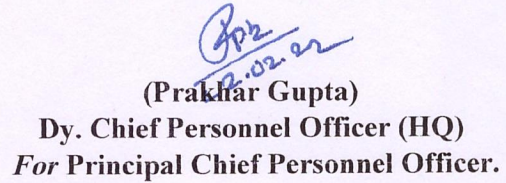 (Prakhar Gupta)
Dy. Chief Personnel Officer (HQ)
For Principal Chief Personnel Officer.